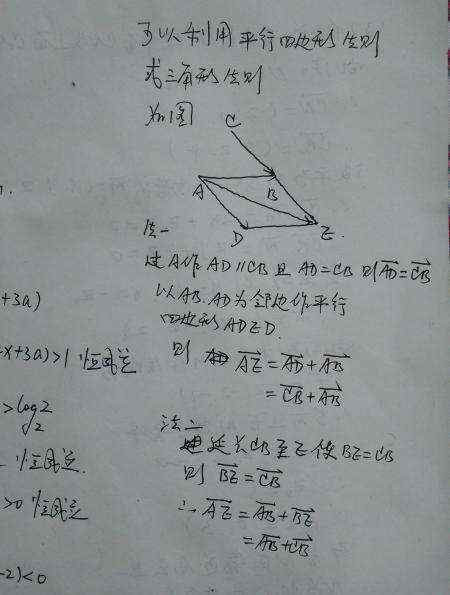 可以利用平行四边形法则
或三角形法则
如图
C
A
B
D
E.
法一
过A作AD∥CB且AD=CB则\overrightarrow{AD}=\overrightarrow{CB}
以AB.AD为邻边作平行
四边形ADED.
则 \overrightarrow{AE}=\overrightarrow{AD}+\overrightarrow{AB}
=\overrightarrow{CB}+\overrightarrow{AB}
法二
延长CB至E使BE=CB
则 \overrightarrow{BE}=\overrightarrow{CB}
∴\overrightarrow{AE}=\overrightarrow{AB}+\overrightarrow{BE}
=\overrightarrow{AB}+\overrightarrow{CB}
+3a)
-x+3a)>1 恒成立
>log2 2
恒成立.
>0 恒成立
-2)<0